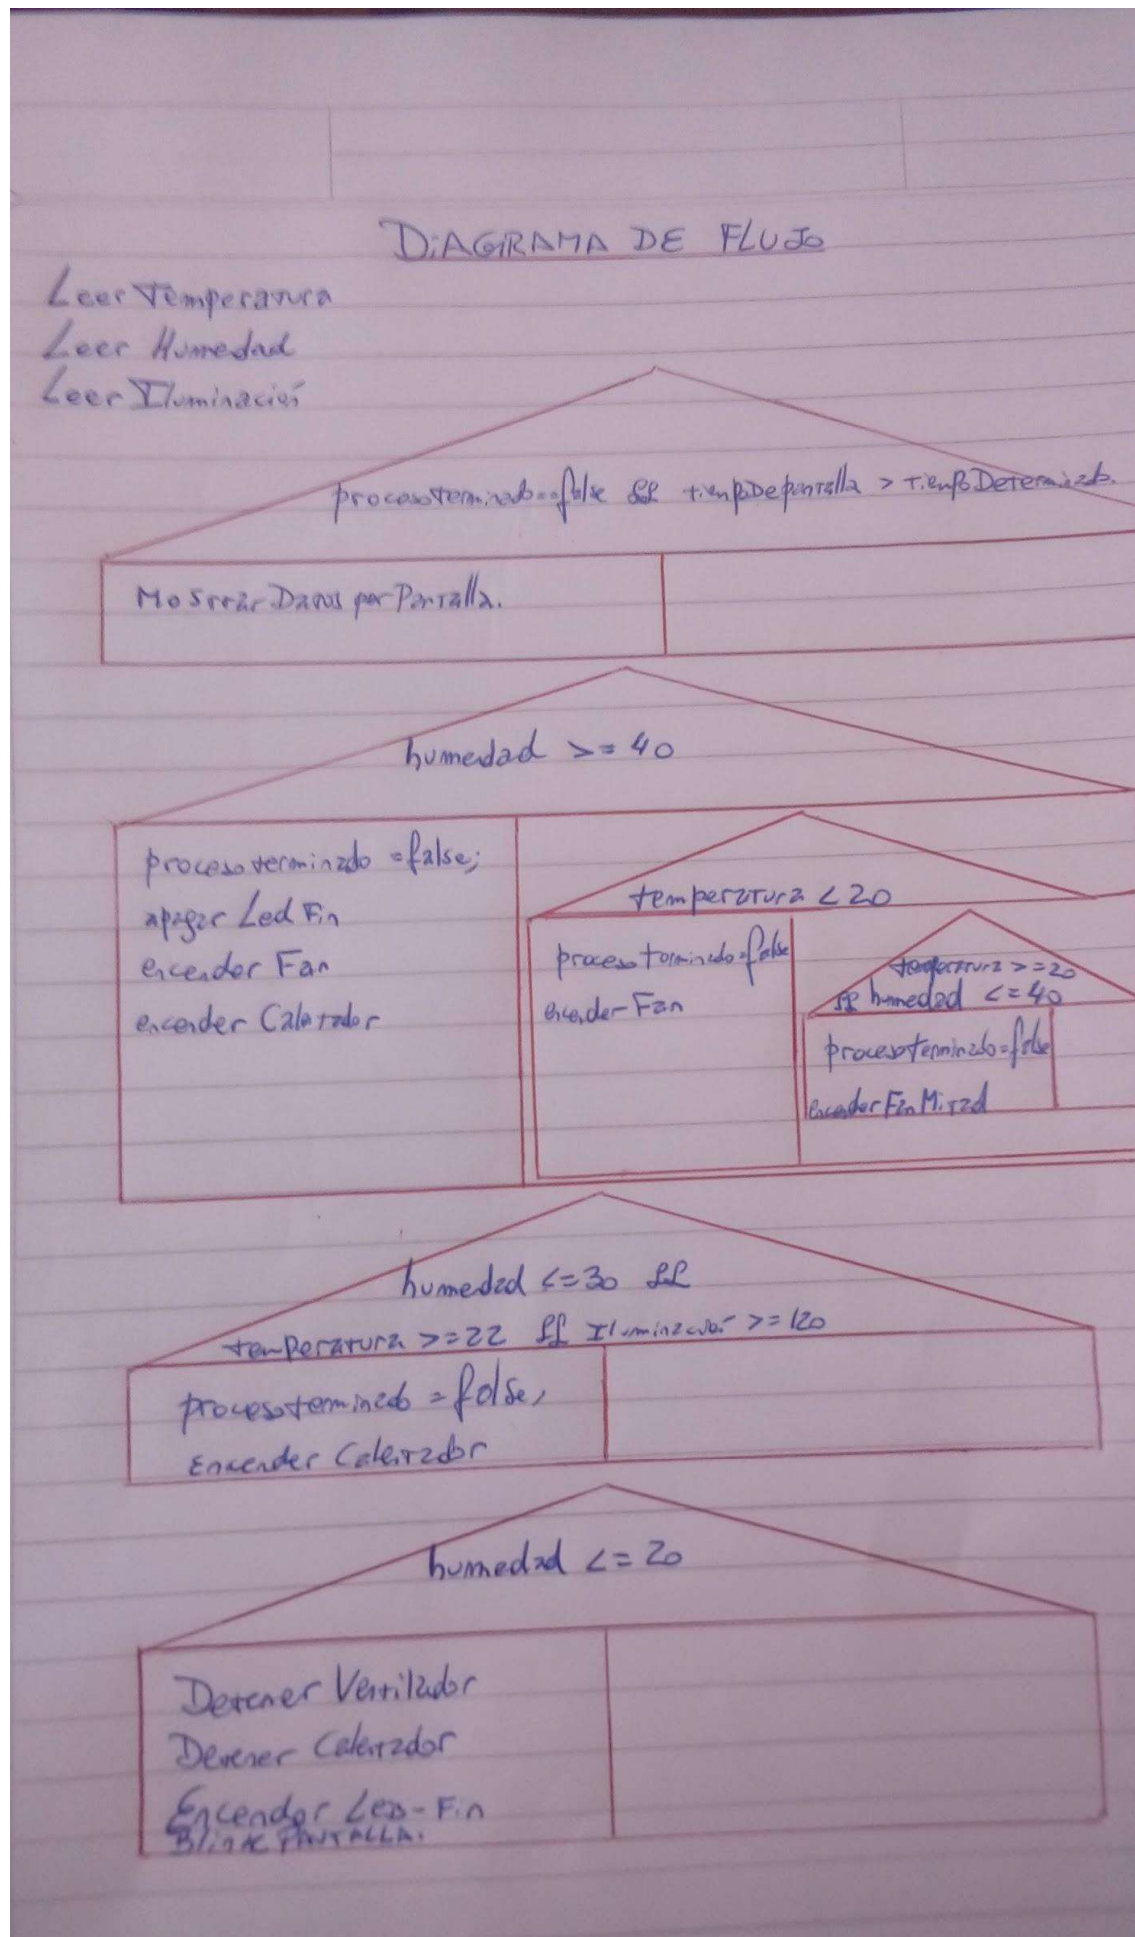 DIAGRAMA DE FLUJO
Leer Temperatura
Leer Humedad
Leer Iluminación
procesoterminado==false && tiempoDepantalla > tiempoDeterminado.
Mostrar Datos por Pantalla.
humedad >= 40
procesoterminado =false;
apagar Led Fin
encender Fan
encender Calentador
temperatura < 20
procesoterminado=false
encender Fan
temperatura >= 20
&& humedad <= 40
procesoterminado=false
encender Fan Mitad
humedad <= 30 &&
temperatura >= 22 && Iluminación >= 120
procesoterminado = false,
Encender Calentador
humedad <= 20
Detener Ventilador
Detener Calentador
Encender Led-Fin
Blink PANTALLA.